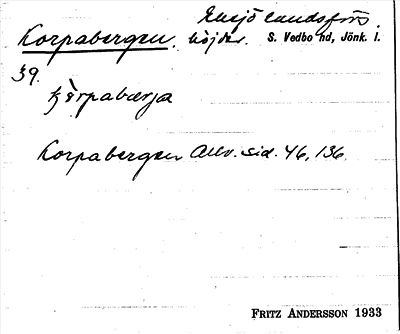 Eksjö landsförs.
Korpabergen. höjder. S. Vedbo hd, Jönk. l.
39.
kårpabærja
Korpabergen Allv. sid. 46, 136
FRITZ ANDERSSON 1933